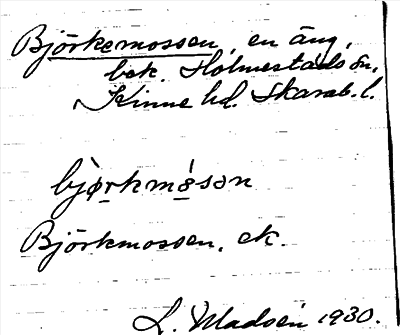 Björkemossen, en äng,
bek. Holmestads sn,
Kinne hd. Skarab. l.
bjørkmåsən
Björkmossen, ek.
L. Madsén 1930.